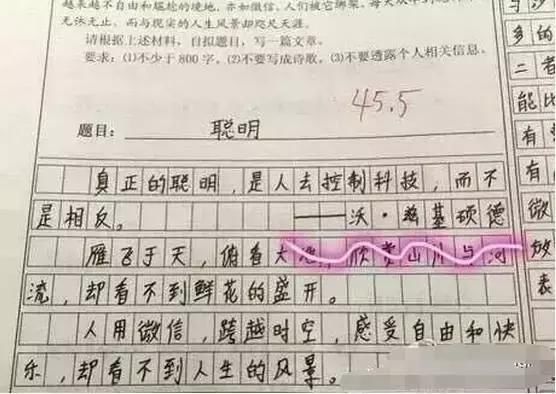 越来越不自由和尴尬的境地，亦如微信，人们被它绑架，每天
无休无止，而与现实的人生风景却咫尺天涯。
请根据上述材料，自拟题目，写一篇文章。
要求：(1)不少于800字，(2)不要写成诗歌，(3)不要透露个人相关信息。
45.5
题目：聪明
真正的聪明，是人去控制科技，而不
是相反。——沃·兹基硕德
雁飞于天，俯看大地，欣赏山川与河
流，却看不到鲜花的盛开。
人用微信，跨越时空，感受自由和快
乐，却看不到人生的风景。
与
多的
二者
能比
有
有
微
放
表